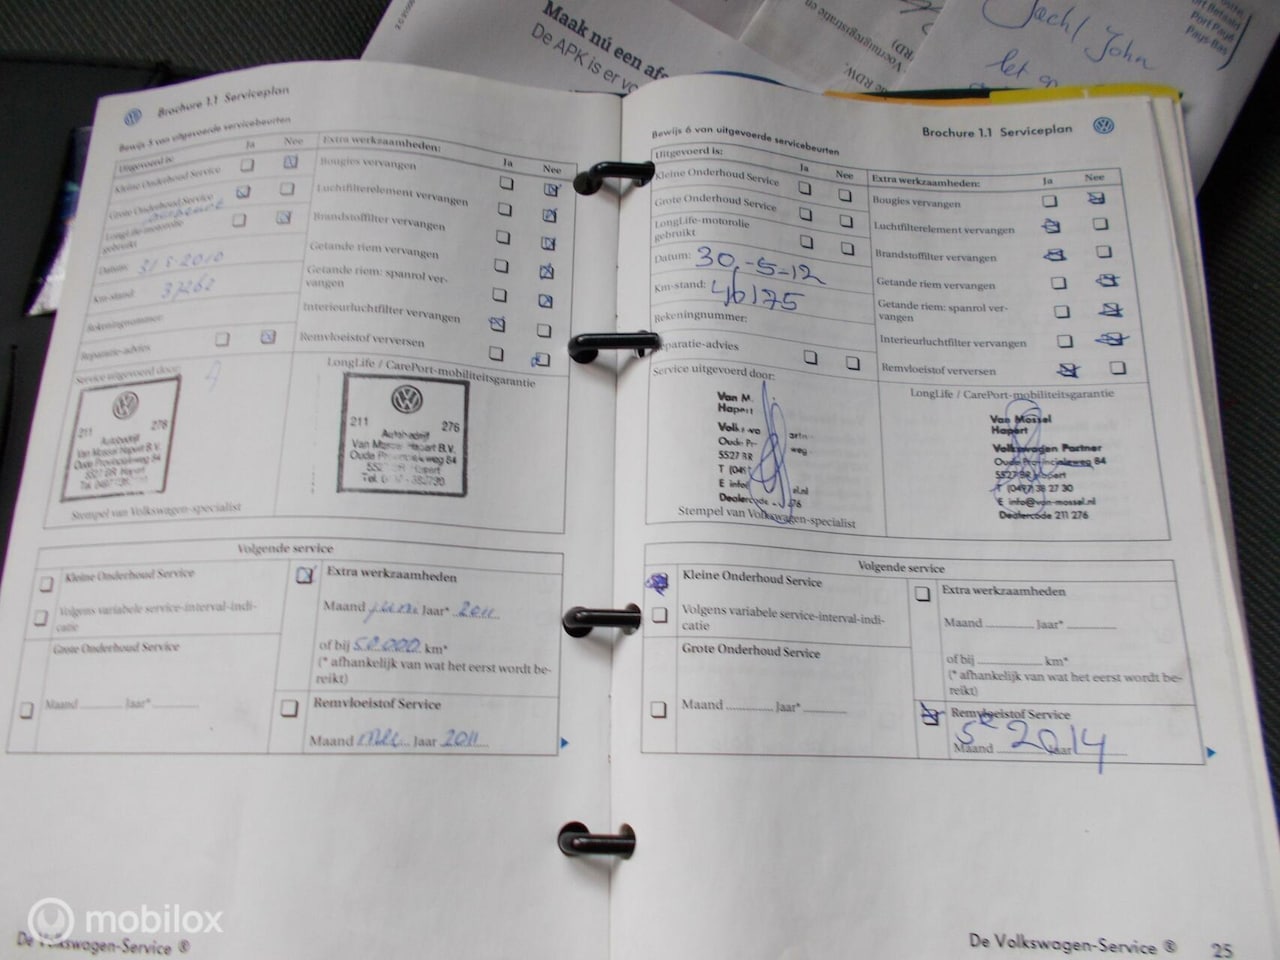 Maak nú een afs
De APK is er vo
Voermigregistratie en
RDW.
Jach/ John
let op
Port Betaald
Port Payé
Pays-Bas
Brochure 1.1 Serviceplan
Bewijs 5 van uitgevoerde servicebeurten
Uitgevoerd is:
Ja Nee
Kleine Onderhoud Service
Grote Onderhoud Service
LongLife-motorolie
gebruikt
Datum: 31-5-2010
Km-stand: 37262
Rekeningnummer:
Reparatie-advies
Service uitgevoerd door:
211 276
Autobedrijf
Van Mossel Hapert B.V.
Oude Provincialeweg 84
5527 BR Hapert
Stempel van Volkswagen-specialist
Extra werkzaamheden:
Ja Nee
Bougies vervangen
Luchtfilterelement vervangen
Brandstoffilter vervangen
Getande riem vervangen
Getande riem: spanrol ver-
vangen
Interieurluchtfilter vervangen
Remvloeistof verversen
LongLife / CarePort-mobiliteitsgarantie
211 276
Autobedrijf
Van Mossel Hapert B.V.
Oude Provincialeweg 84
5527 BR Hapert
Volgende service
Kleine Onderhoud Service
Volgens variabele service-interval-indi-
catie
Grote Onderhoud Service
Maand Jaar*
Extra werkzaamheden
Maand juni Jaar* 2011
of bij 50.000 km*
(* afhankelijk van wat het eerst wordt be-
reikt)
Remvloeistof Service
Maand mei Jaar 2011
De Volkswagen-Service ®
Brochure 1.1 Serviceplan
Bewijs 6 van uitgevoerde servicebeurten
Uitgevoerd is:
Ja Nee
Kleine Onderhoud Service
Grote Onderhoud Service
LongLife-motorolie
gebruikt
Datum: 30-5-12
Km-stand: 46175
Rekeningnummer:
Reparatie-advies
Service uitgevoerd door:
Van M.
Hapert
Oude Pr
weg
5527 BR
Stempel van Volkswagen-specialist
Extra werkzaamheden:
Ja Nee
Bougies vervangen
Luchtfilterelement vervangen
Brandstoffilter vervangen
Getande riem vervangen
Getande riem: spanrol ver-
vangen
Interieurluchtfilter vervangen
Remvloeistof verversen
LongLife / CarePort-mobiliteitsgarantie
Van Mossel
Hapert
Volkswagen Partner
Oude Provincialeweg 84
5527 BR Hapert
T (0497) 38 27 30
E info@van-mossel.nl
Dealercode 211 276
Volgende service
Kleine Onderhoud Service
Volgens variabele service-interval-indi-
catie
Grote Onderhoud Service
Maand Jaar*
Extra werkzaamheden
Maand Jaar*
of bij km*
(* afhankelijk van wat het eerst wordt be-
reikt)
Remvloeistof Service
Maand 5e Jaar 2014
De Volkswagen-Service ® 25
mobilox